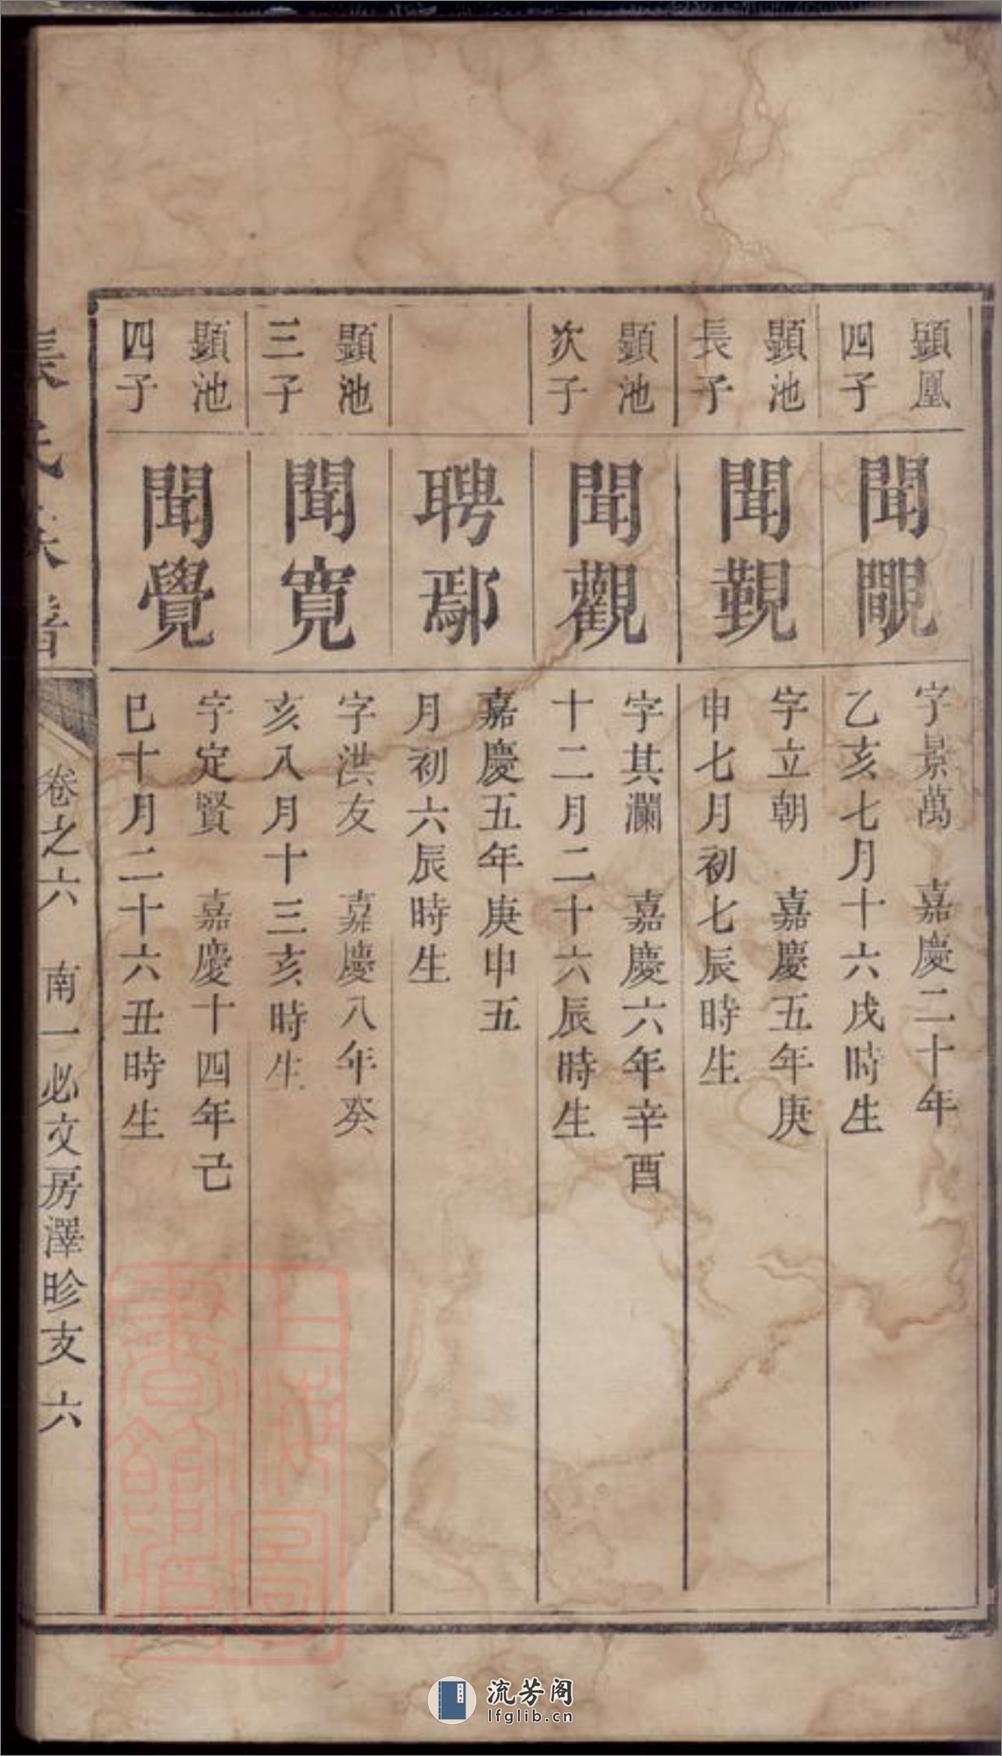 顯鳳
四子
聞覵
字景萬　嘉慶二十年
乙亥七月十六戌時生
顯池
長子
聞觐
字立朝　嘉慶五年庚
申七月初七辰時生
顯池
次子
聞觀
字其瀾　嘉慶六年辛酉
十二月二十六辰時生
聘鄢
嘉慶五年庚申五
月初六辰時生
顯池
三子
聞寬
字洪友　嘉慶八年癸
亥八月十三亥時生
顯池
四子
聞覺
字定賢　嘉慶十四年己
巳十月二十六丑時生
張氏族譜
卷之六　南一必文房澤昣支　六
上海圖
書館藏
流芳阁
lfglib.cn